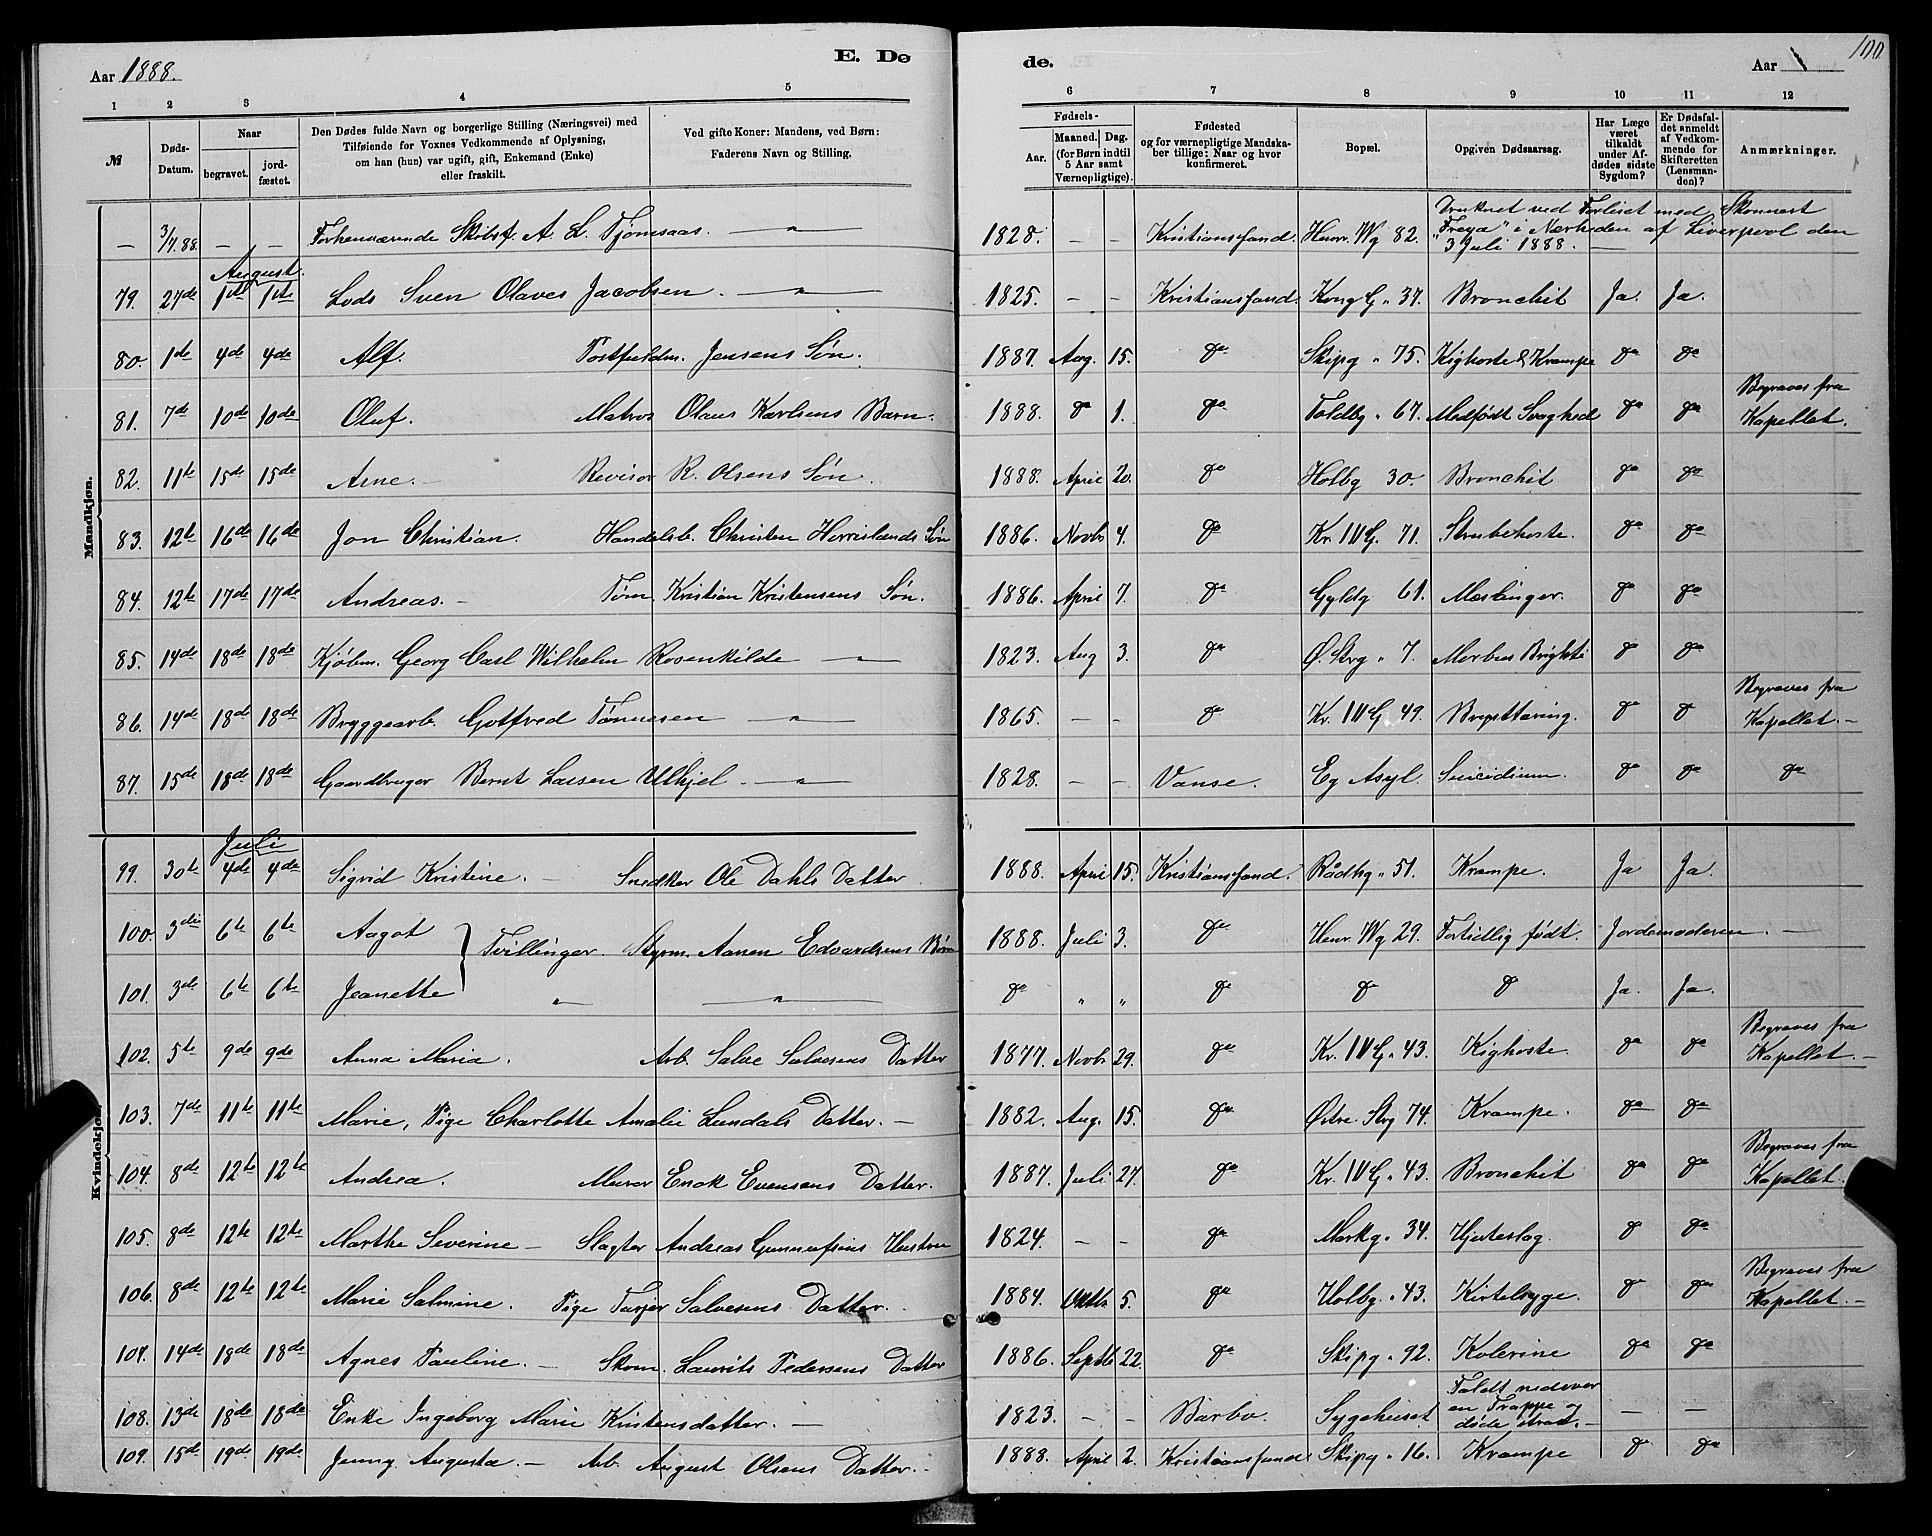 Aar 1888. E. Dø
de. Aar 100
1 2 3 4 5
6 7 8 9 10 11 12
№ Døds-Datum. Naar begravet. jord-fæstet. Den Dødes fulde Navn og borgerlige Stilling (Næringsvei) med Tilføiende for Voxnes Vedkommende af Oplysning, om han (hun) var ugift, gift, Enkemand (Enke) eller fraskilt. Ved gifte Koner: Mandens, ved Børn: Faderens Navn og Stilling.
Fødsels- Aar. Maaned. Dag. (for Børn indtil 5 Aar samt Værnepligtige). Fødested og for værnepligtige Mandska-ber tillige: Naar og hvor konfirmeret. Bopæl. Opgiven Dødsaarsag. Har Læge været tilkaldt under Af-dødes sidste Sygdom? Er Dødsfal-det anmeldt af Vedkom-mende for Skifteretten (Lensman-den)? Anmærkninger.
Mandkjøn.
— 3/7.88. — — Forhenværende Skibsf. A. L. Tjomsaas. — " — 1828. — — Kristianssand. Henr. Wg 82. Druknet ved Forliset med Skonnert "Freya" i Nærheden af Liverpool den 3 Juli 1888. —
August.
79. 27de 1ste 1ste Lods Sven Olaves Jacobsen. — " — 1825. — — Kristianssand. Kong G. " 37. Bronchit Ja. Ja.
80. 1ste 4de 4de Alf. Postfuldm. Jensens Søn. 1887. Aug. 15. do Skipg " 75. Kighoste & Krampe do do
81. 7de 10de 10de Oluf. Matros Olaus Karlsens Barn. 1888. do 1. do Toldbg " 67. Medfødt Svaghed do do Begraves fra Kapellet.
82. 11te 15de 15de Arne. — Revisor R. Olsens Søn. 1888. April 20. do Holbg 30. Bronchit do do
83. 12te 16de 16de Jon Christian. Handelsb. Christen Horrislands Søn 1886. Novbr 4. do Kr. IV G. 71. Strubehoste. do do
84. 12te 17de 17de Andreas. — Tøm. Kristian Kristensens Søn. 1886. April 7. do Gyldg 61. Mæslinger. do do
85. 14de 18de 18de Kjøbm. Georg Carl Wilhelm Rosenkilde — " — 1823. Aug 3. do Ø. Strg " 7. Morbus Brighti do do
86. 14de 18de 18de Bryggearb. Gotfred Tønnesen — " — 1865. — — do Kr. IV G. 49. Brysttæring. do do Begraves fra Kapellet. —
87. 15de 18de 18de Gaardbruger Bernt Larsen Ulhjel — " — 1828. — — Vanse. Eg Asyl. Suicidium. do do do
Kvindekjøn.
Juli
99. 30te 4de 4de Sigrid Kristine. — Snedker Ole Dahls Datter. 1888. April 15. Kristianssand. Rådhg " 51. Krampe. Ja Ja.
100. 3die 6te 6te Aagot } Tvillinger. Styrm. Aanen Edvardsens Børn 1888. Juli 3. do Henr. Wg 29. Fortidlig født. Jordemoderen. —
101. 3die 6te 6te Jeanette " — " — do " " do do do Ja. Ja.
102. 5te 9de 9de Anna Maria. Arb. Salve Salvesens Datter 1877. Novbr 29. do Kr. IV G. " 43. Kighoste. do do Begraves fra Kapellet. —
103. 7de 11te 11te Marie, Pige Charlotte Amalie Lundals Datter. — 1882. Aug. 15. do Østre. Strg 74. Krampe. do do
104. 8de 12te 12te Andrea. Murer Enok Evensens Datter. 1887. Juli 27. do Kr. IV G. " 43. Bronchit do do Begraves fra Kapellet.
105. 8de 12te 12te Marthe Severine — Slagter Andreas Gunnufsens Hustru 1824. — — do Markg. " 34. Hjerteslag. do do
106. 8de 12te 12te Marie Salmine. Pige Tarjer Salvesens Datter. 1884. Oktbr 5. do Holbg. " 43. Kirtelsyge. do do Begraves fra Kapellet. —
107. 14de 18de 18de Agnes Pauline. — Skom. Laurits Pedersens Datter 1886. Septb 22. do Skipg " 92. Kolerine do do
108. 13de 18de 18de Enke Ingeborg Marie Kristensdatter. — 1823. — — Barbo. Sygehuset Faldt nedover en Trappe og døde strax. — — —
109. 15de 19de 19de Jenny Augusta. — Arb. August Olsens Datter. — 1888. April 2. Kristianssand Skipg " 16. Krampe do do